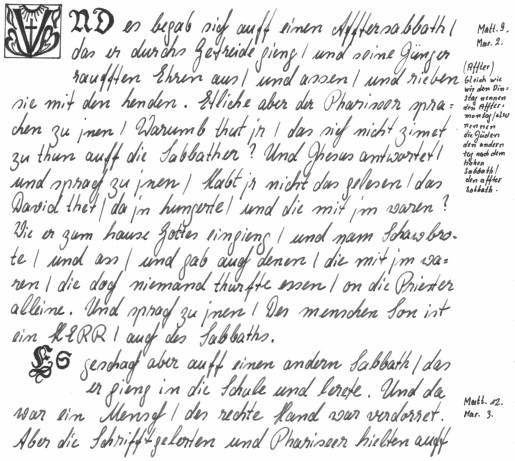 VND es begab sich auff einen Afftersabbath/
das er durchs Getreide gieng/ und seine Jünger
raufften Ehren aus/ und assen/ und rieben
sie mit den henden. Etliche aber der Phariseer spra=
chen zu jnen/ Warumb thut jr/ das sich nicht zimet
zu thun auff die Sabbather? Und Jhesus antwortet/
und sprach zu jnen/ Habt jr nicht das gelesen/ das
David thet/ da jn hungerte/ und die mit jm waren?
Wie er zum hause Gottes eingieng/ und nam Schawbro=
te/ und ass/ und gab auch denen/ die mit jm wa=
ren/ die doch niemand thurffte essen/ on die Priester
alleine. Und sprach zu jnen/ Des menschen Son ist
ein HERR/ auch des Sabbaths.
ES geschach aber auff einen andern Sabbath/ das
er gieng in die Schule und lerete. Und da
war ein Mensch/ des rechte Hand war verdorret.
Aber die Schrifftgelerten und Phariseer hielten auff
Matt. 9.
Mar. 2.
(Affter)
Gleich wie
wir den Din=
stag nennen
den Affter=
montag/ also
nennen
die Jüden
den andern
tag nach dem
hohen
Sabbath/
den affter
Sabbath.
Matt. 12.
Mar. 3.